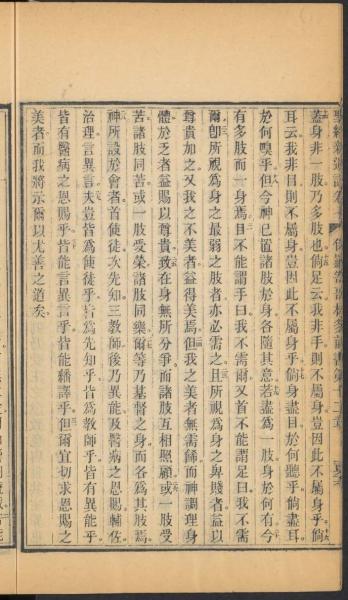 蓋身非一肢乃多肢也倘足云我非手則不屬身豈因此不屬身乎倘
耳云我非目則不屬身豈因此不屬身乎倘身盡目於何聽乎倘盡耳
於何嗅乎但今神已置諸肢於身各隨其意若盡為一肢身於何有今
有多肢而一身焉目不能謂手曰我不需爾又首不能謂足曰我不需
爾卽所視為身之最弱之肢者亦必需之且所視為身之卑賤者益以
尊貴加之又我之不美者益得美焉但我之美者無需飾而神調理身
體於乏者益賜以尊貴致在身無所分爭而諸肢互相照顧或一肢受
苦諸肢同苦或一肢受榮諸肢同樂爾等乃基督之身而各為其肢焉
神所設於會者首使徒次先知三教師後乃異能及醫病之恩賜輔佐
治理言異言夫豈皆為使徒乎皆為先知乎皆為教師乎皆有異能乎
皆有醫病之恩賜乎皆能言異言乎皆能繙譯乎但爾宜切求恩賜之
美者而我將示爾以尤善之道矣